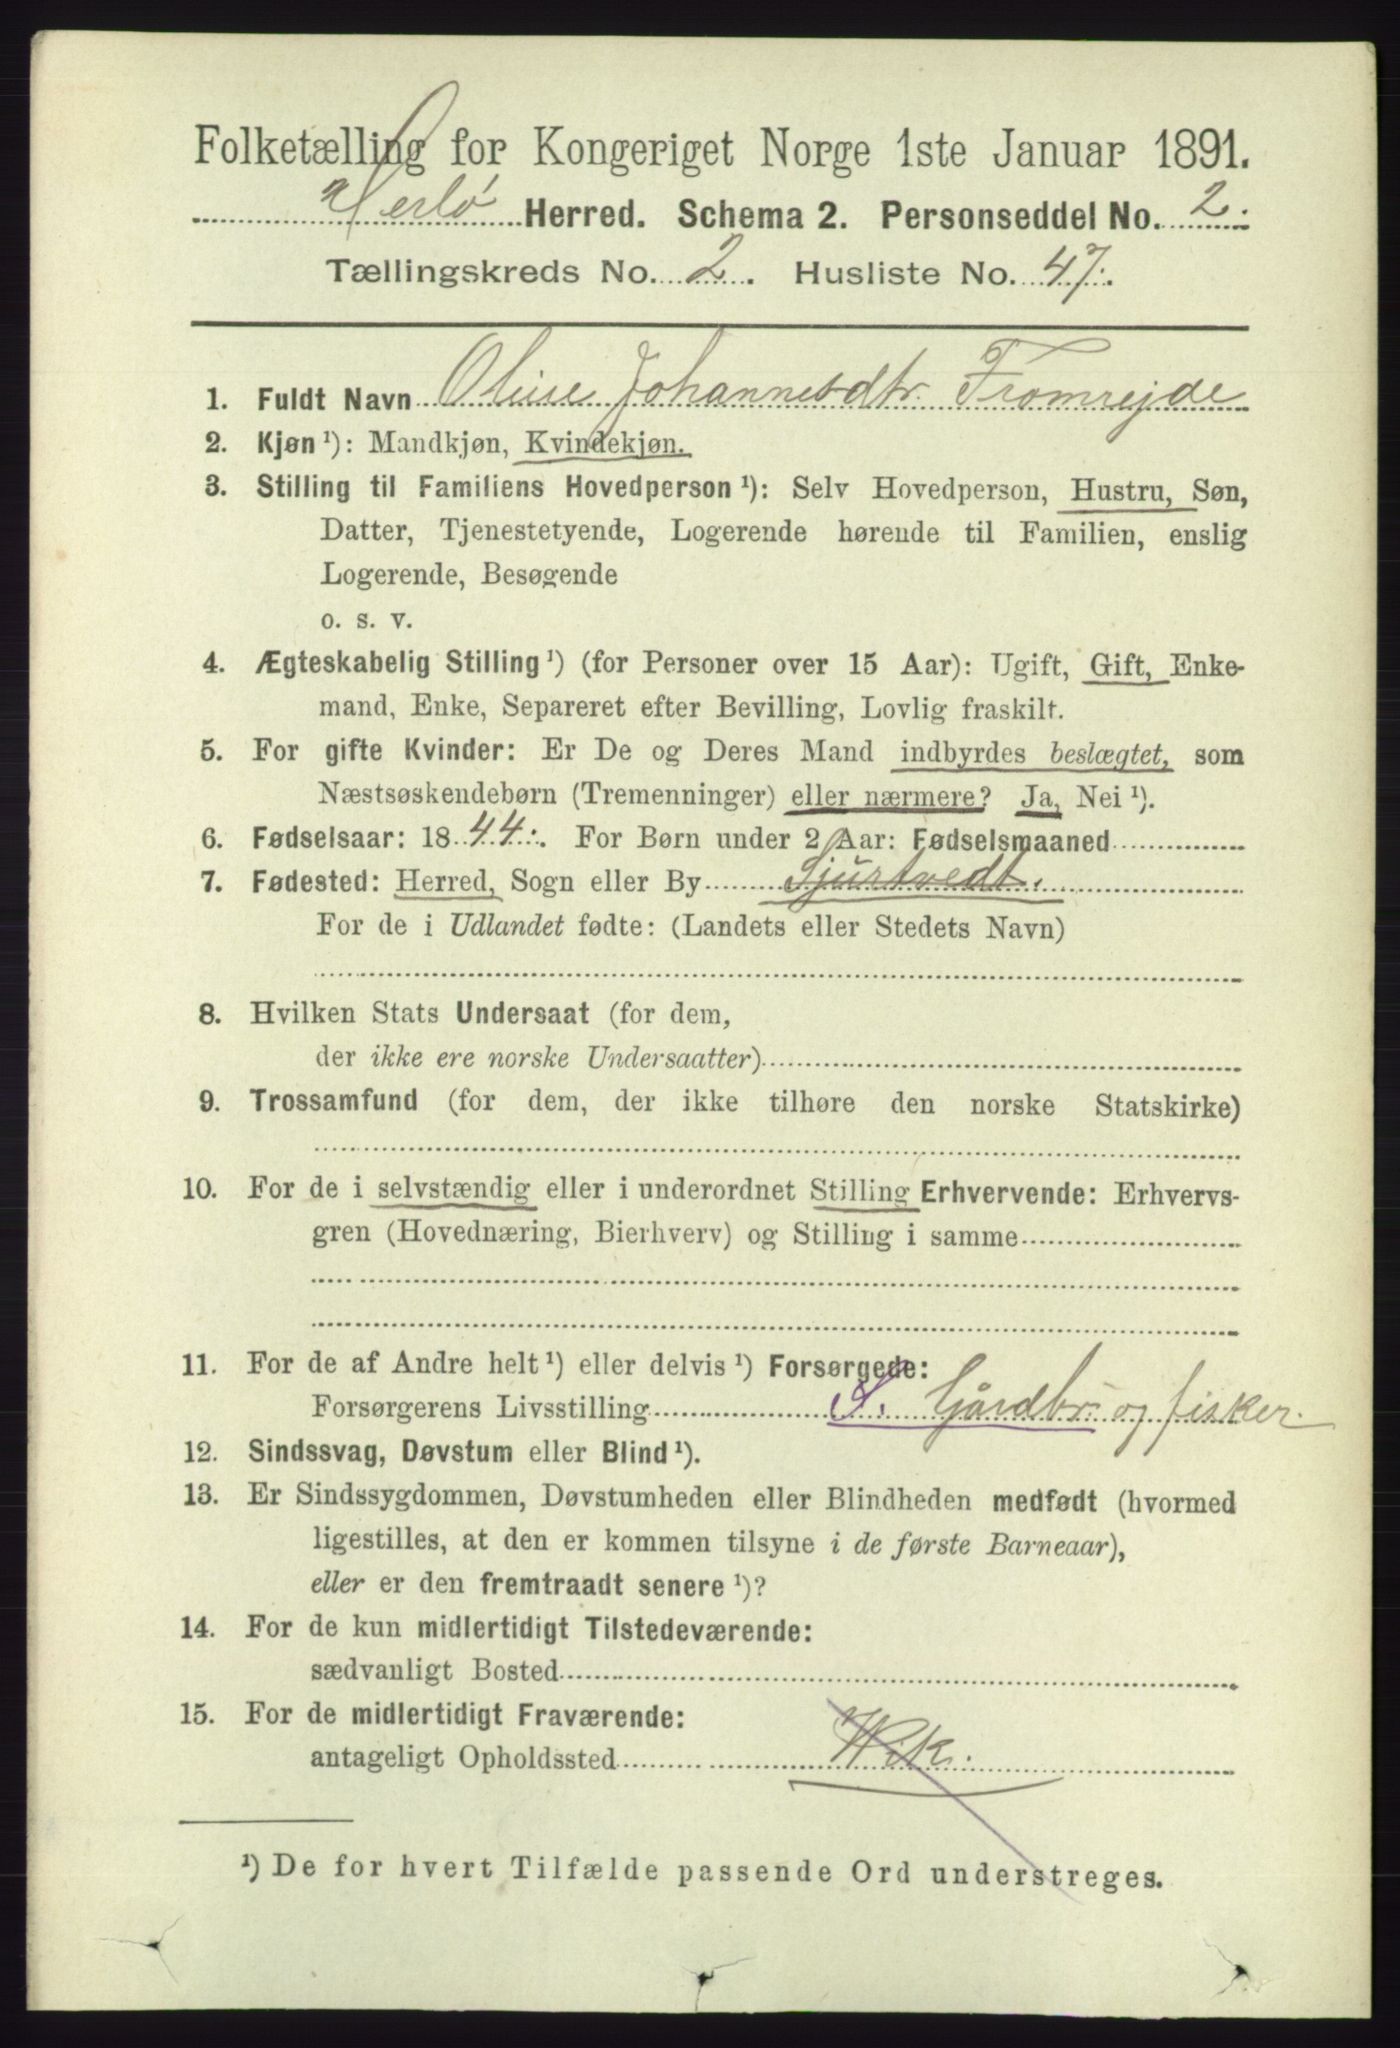 Folketælling for Kongeriget Norge 1ste Januar 1891.
Herlø Herred. Schema 2. Personseddel No. 2.
Tællingskreds No. 2. Husliste No. 47.
1. Fuldt Navn Oline Johannesdtr. Fromrejde
2. Kjøn ¹): Mandkjøn, Kvindekjøn.
3. Stilling til Familiens Hovedperson ¹): Selv Hovedperson, Hustru, Søn,
Datter, Tjenestetyende, Logerende hørende til Familien, enslig
Logerende, Besøgende
o. s. v.
4. Ægteskabelig Stilling ¹) (for Personer over 15 Aar): Ugift, Gift, Enke-
mand, Enke, Separeret efter Bevilling, Lovlig fraskilt.
5. For gifte Kvinder: Er De og Deres Mand indbyrdes beslægtet, som
Næstsøskendebørn (Tremenninger) eller nærmere? Ja, Nei ¹).
6. Fødselsaar: 1844. For Børn under 2 Aar: Fødselsmaaned
7. Fødested: Herred, Sogn eller By Sjurtvedt.
For de i Udlandet fødte: (Landets eller Stedets Navn)
8. Hvilken Stats Undersaat (for dem,
der ikke ere norske Undersaatter)
9. Trossamfund (for dem, der ikke tilhøre den norske Statskirke)
10. For de i selvstændig eller i underordnet Stilling Erhvervende: Erhvervs-
gren (Hovednæring, Bierhverv) og Stilling i samme
11. For de af Andre helt ¹) eller delvis ¹) Forsørgede:
Forsørgerens Livsstilling S. Gårdbr. og fisker.
12. Sindssvag, Døvstum eller Blind ¹).
13. Er Sindssygdommen, Døvstumheden eller Blindheden medfødt (hvormed
ligestilles, at den er kommen tilsyne i de første Barneaar),
eller er den fremtraadt senere ¹)?
14. For de kun midlertidigt Tilstedeværende:
sædvanligt Bosted
15. For de midlertidigt Fraværende:
antageligt Opholdssted Wik.
¹) De for hvert Tilfælde passende Ord understreges.